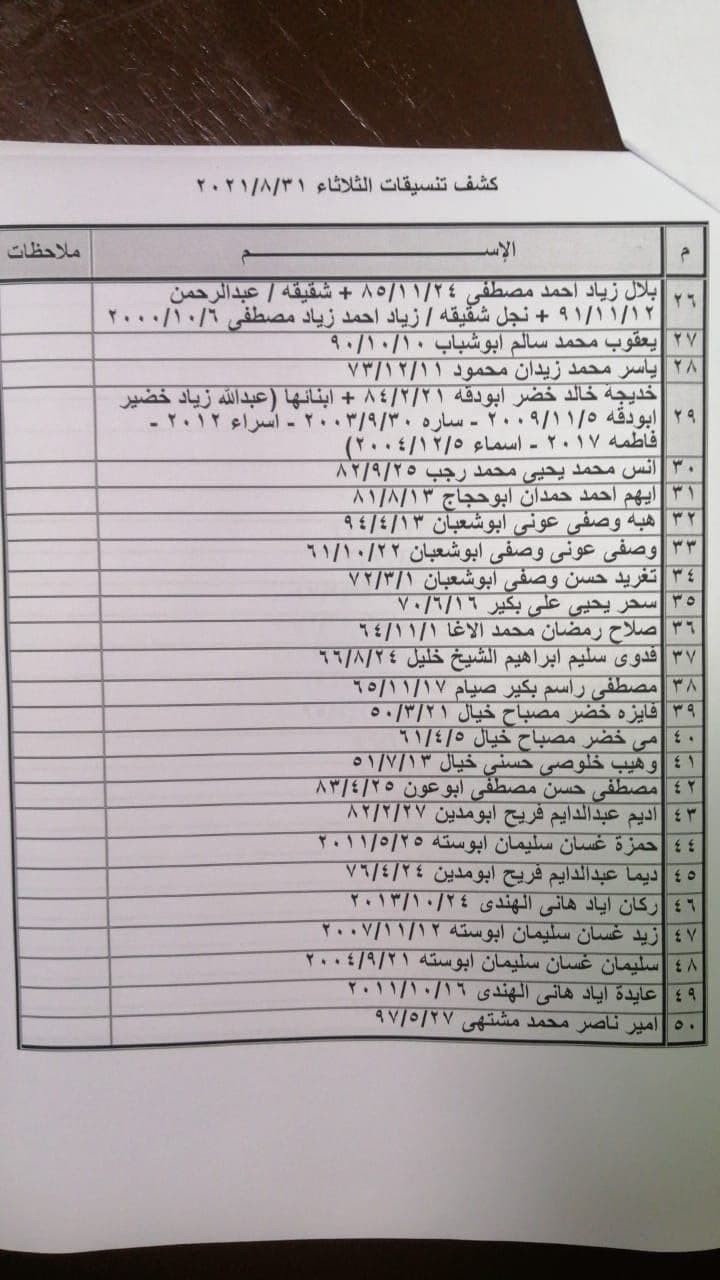 كشف تنسيقات الثلاثاء ٢٠٢١/٨/٣١
م الإســـــــــم ملاحظات
٢٦ بلال زياد احمد مصطفى ٨٥/١١/٢٤ + شقيقه / عبدالرحمن
٩١/١١/١٢ + نجل شقيقه / زياد احمد زياد مصطفى ٢٠٠٠/١٠/٦
٢٧ يعقوب محمد سالم ابوشباب ٩٠/١٠/١٠
٢٨ ياسر محمد زيدان محمود ٧٣/١٢/١١
٢٩ خديجة خالد خضر ابودقه ٨٤/٢/٢١ + ابنائها (عبدالله زياد خضير
ابودقه ٢٠٠٩/١١/٥ - ساره ٢٠٠٣/٩/٣٠ - اسراء ٢٠١٢ -
فاطمه ٢٠١٧ - اسماء ٢٠٠٤/١٢/٥)
٣٠ انس محمد يحيى محمد رجب ٨٢/٩/٢٥
٣١ ايهم احمد حمدان ابوحجاج ٨١/٨/١٣
٣٢ هبه وصفى عونى ابوشعبان ٩٤/٤/١٣
٣٣ وصفى عونى وصفى ابوشعبان ٦١/١٠/٢٢
٣٤ تغريد حسن وصفى ابوشعبان ٧٢/٣/١
٣٥ سحر يحيى على بكير ٧٠/٦/١٦
٣٦ صلاح رمضان محمد الاغا ٦٤/١١/١
٣٧ فدوى سليم ابراهيم الشيخ خليل ٦٦/٨/٢٤
٣٨ مصطفى راسم بكير صيام ٦٥/١١/١٧
٣٩ فايزه خضر مصباح خيال ٥٠/٣/٢١
٤٠ مى خضر مصباح خيال ٦١/٤/٥
٤١ وهيب خلوصى حسنى خيال ٥١/٧/١٣
٤٢ مصطفى حسن مصطفى ابوعون ٨٣/٤/٢٥
٤٣ اديم عبدالدايم فريح ابومدين ٨٢/٢/٢٧
٤٤ حمزة غسان سليمان ابوسته ٢٠١١/٥/٢٥
٤٥ ديما عبدالدايم فريح ابومدين ٧٦/٤/٢٤
٤٦ ركان اياد هانى الهندى ٢٠١٣/١٠/٢٤
٤٧ زيد غسان سليمان ابوسته ٢٠٠٧/١١/١٢
٤٨ سليمان غسان سليمان ابوسته ٢٠٠٤/٩/٢١
٤٩ عايدة اياد هانى الهندى ٢٠١١/١٠/١٦
٥٠ امير ناصر محمد مشتهى ٩٧/٥/٢٧